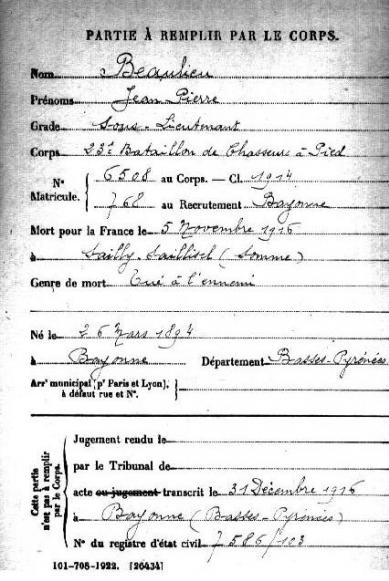 PARTIE À REMPLIR PAR LE CORPS.
Nom Beaulieu
Prénoms Jean Pierre
Grade Sous-Lieutenant
Corps 23e Bataillon de Chasseurs à Pied
No Matricule. 6508 au Corps. — Cl. 1914
768 au Recrutement Bayonne
Mort pour la France le 5 Novembre 1916
à Sailly-Saillisel (Somme)
Genre de mort Tué à l'ennemi
Né le 26 Mars 1894
à Bayonne Département Basses-Pyrénées
Arrt municipal (pr Paris et Lyon), à défaut rue et No.
Cette partie n'est pas à remplir par le Corps.
Jugement rendu le
par le Tribunal de
acte ou jugement transcrit le 31 Décembre 1916
à Bayonne (Basses-Pyrénées)
No du registre d'état civil 7586/103
101-708-1922. [26434]